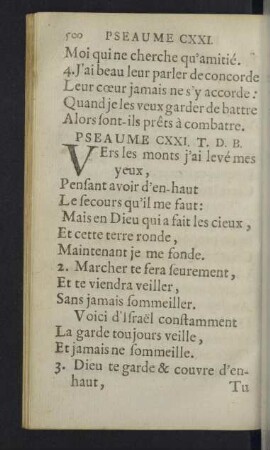 500 PSEAUME CXXI.
Moi qui ne cherche qu'amitié.
4. J'ai beau leur parler de concorde
Leur cœur jamais ne s'y accorde:
Quand je les veux garder de battre
Alors sont-ils prêts à combatre.
PSEAUME CXXI. T. D. B.
VErs les monts j'ai levé mes
yeux,
Pensant avoir d'en-haut
Le secours qu'il me faut:
Mais en Dieu qui a fait les cieux,
Et cette terre ronde,
Maintenant je me fonde.
2. Marcher te fera seurement,
Et te viendra veiller,
Sans jamais sommeiller.
Voici d'Israël constamment
La garde toujours veille,
Et jamais ne sommeille.
3. Dieu te garde & couvre d'en-
haut,
Tu